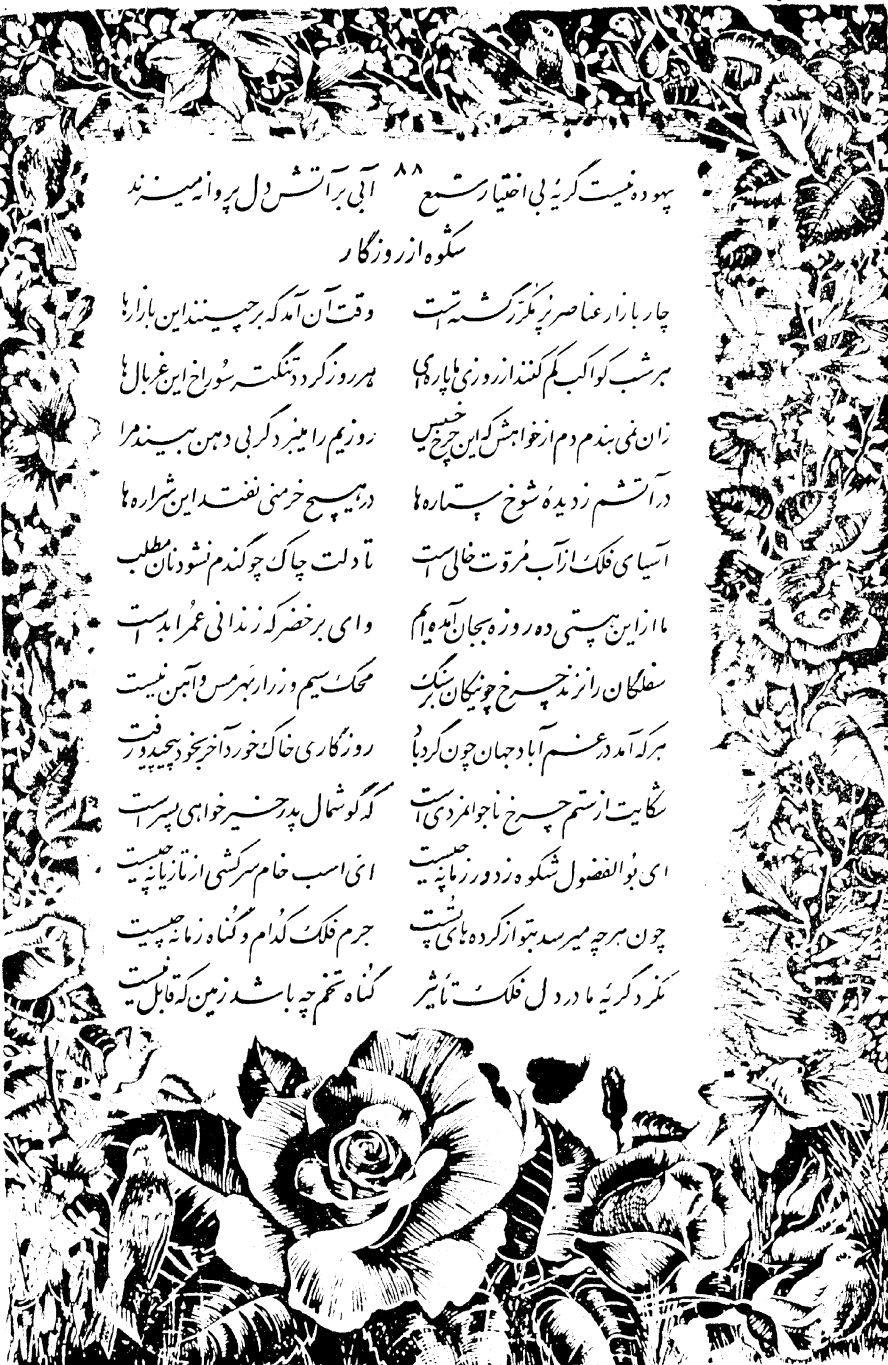 بیهوده نیست گریهٔ بی اختیار شمع ۸۸ آبی بر آتش دل پروانه میزند
شکوه از روزگار
چار بازار عناصر پر مکرّر گشته است وقت آن آمد که برچینند این بازارها
هر شب کواکب کم کنند از روزی ما پاره‌ای هر روز گردد تنگتر سوراخ این غربال‌ها
زان نمی بندم دم از خواهش که این چرخ خسیس روزیم را میبرد گر بی دهن بیند مرا
در آتشم ز دیدهٔ شوخ ستاره‌ها در هیچ خرمنی نفتد این شراره‌ها
آسیای فلک از آب مروّت خالی است تا دلت چاک چو گندم نشود نان مطلب
ما از این هستی ده روزه بجان آمده‌ایم وای بر خضر که زندانی عمر ابد است
سفلگان را نزند چرخ چو نیکان بر سنگ محک سیم و زر از بهر مس و آهن نیست
هر که آمد در غم آباد جهان چون گردباد روزگاری خاک خورد آخر بخود پیچید و رفت
شکایت از ستم چرخ ناجوانمردی است که گوشمال پدر خیر خواهی پسر است
ای بوالفضول شکوه ز دور زمانه چیست ای اسب خام سرکشی از تازیانه چیست
چون هرچه میرسد بتو از کرده‌های تست جرم فلک کدام و گناه زمانه چیست
نکرد گریهٔ ما در دل فلک تأثیر گناه تخم چه باشد زمین که قابل نیست